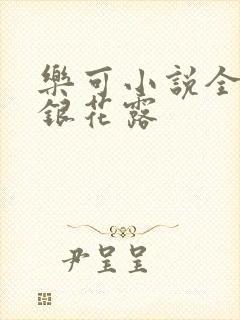 樂可小説全
銀花露
尹呈呈